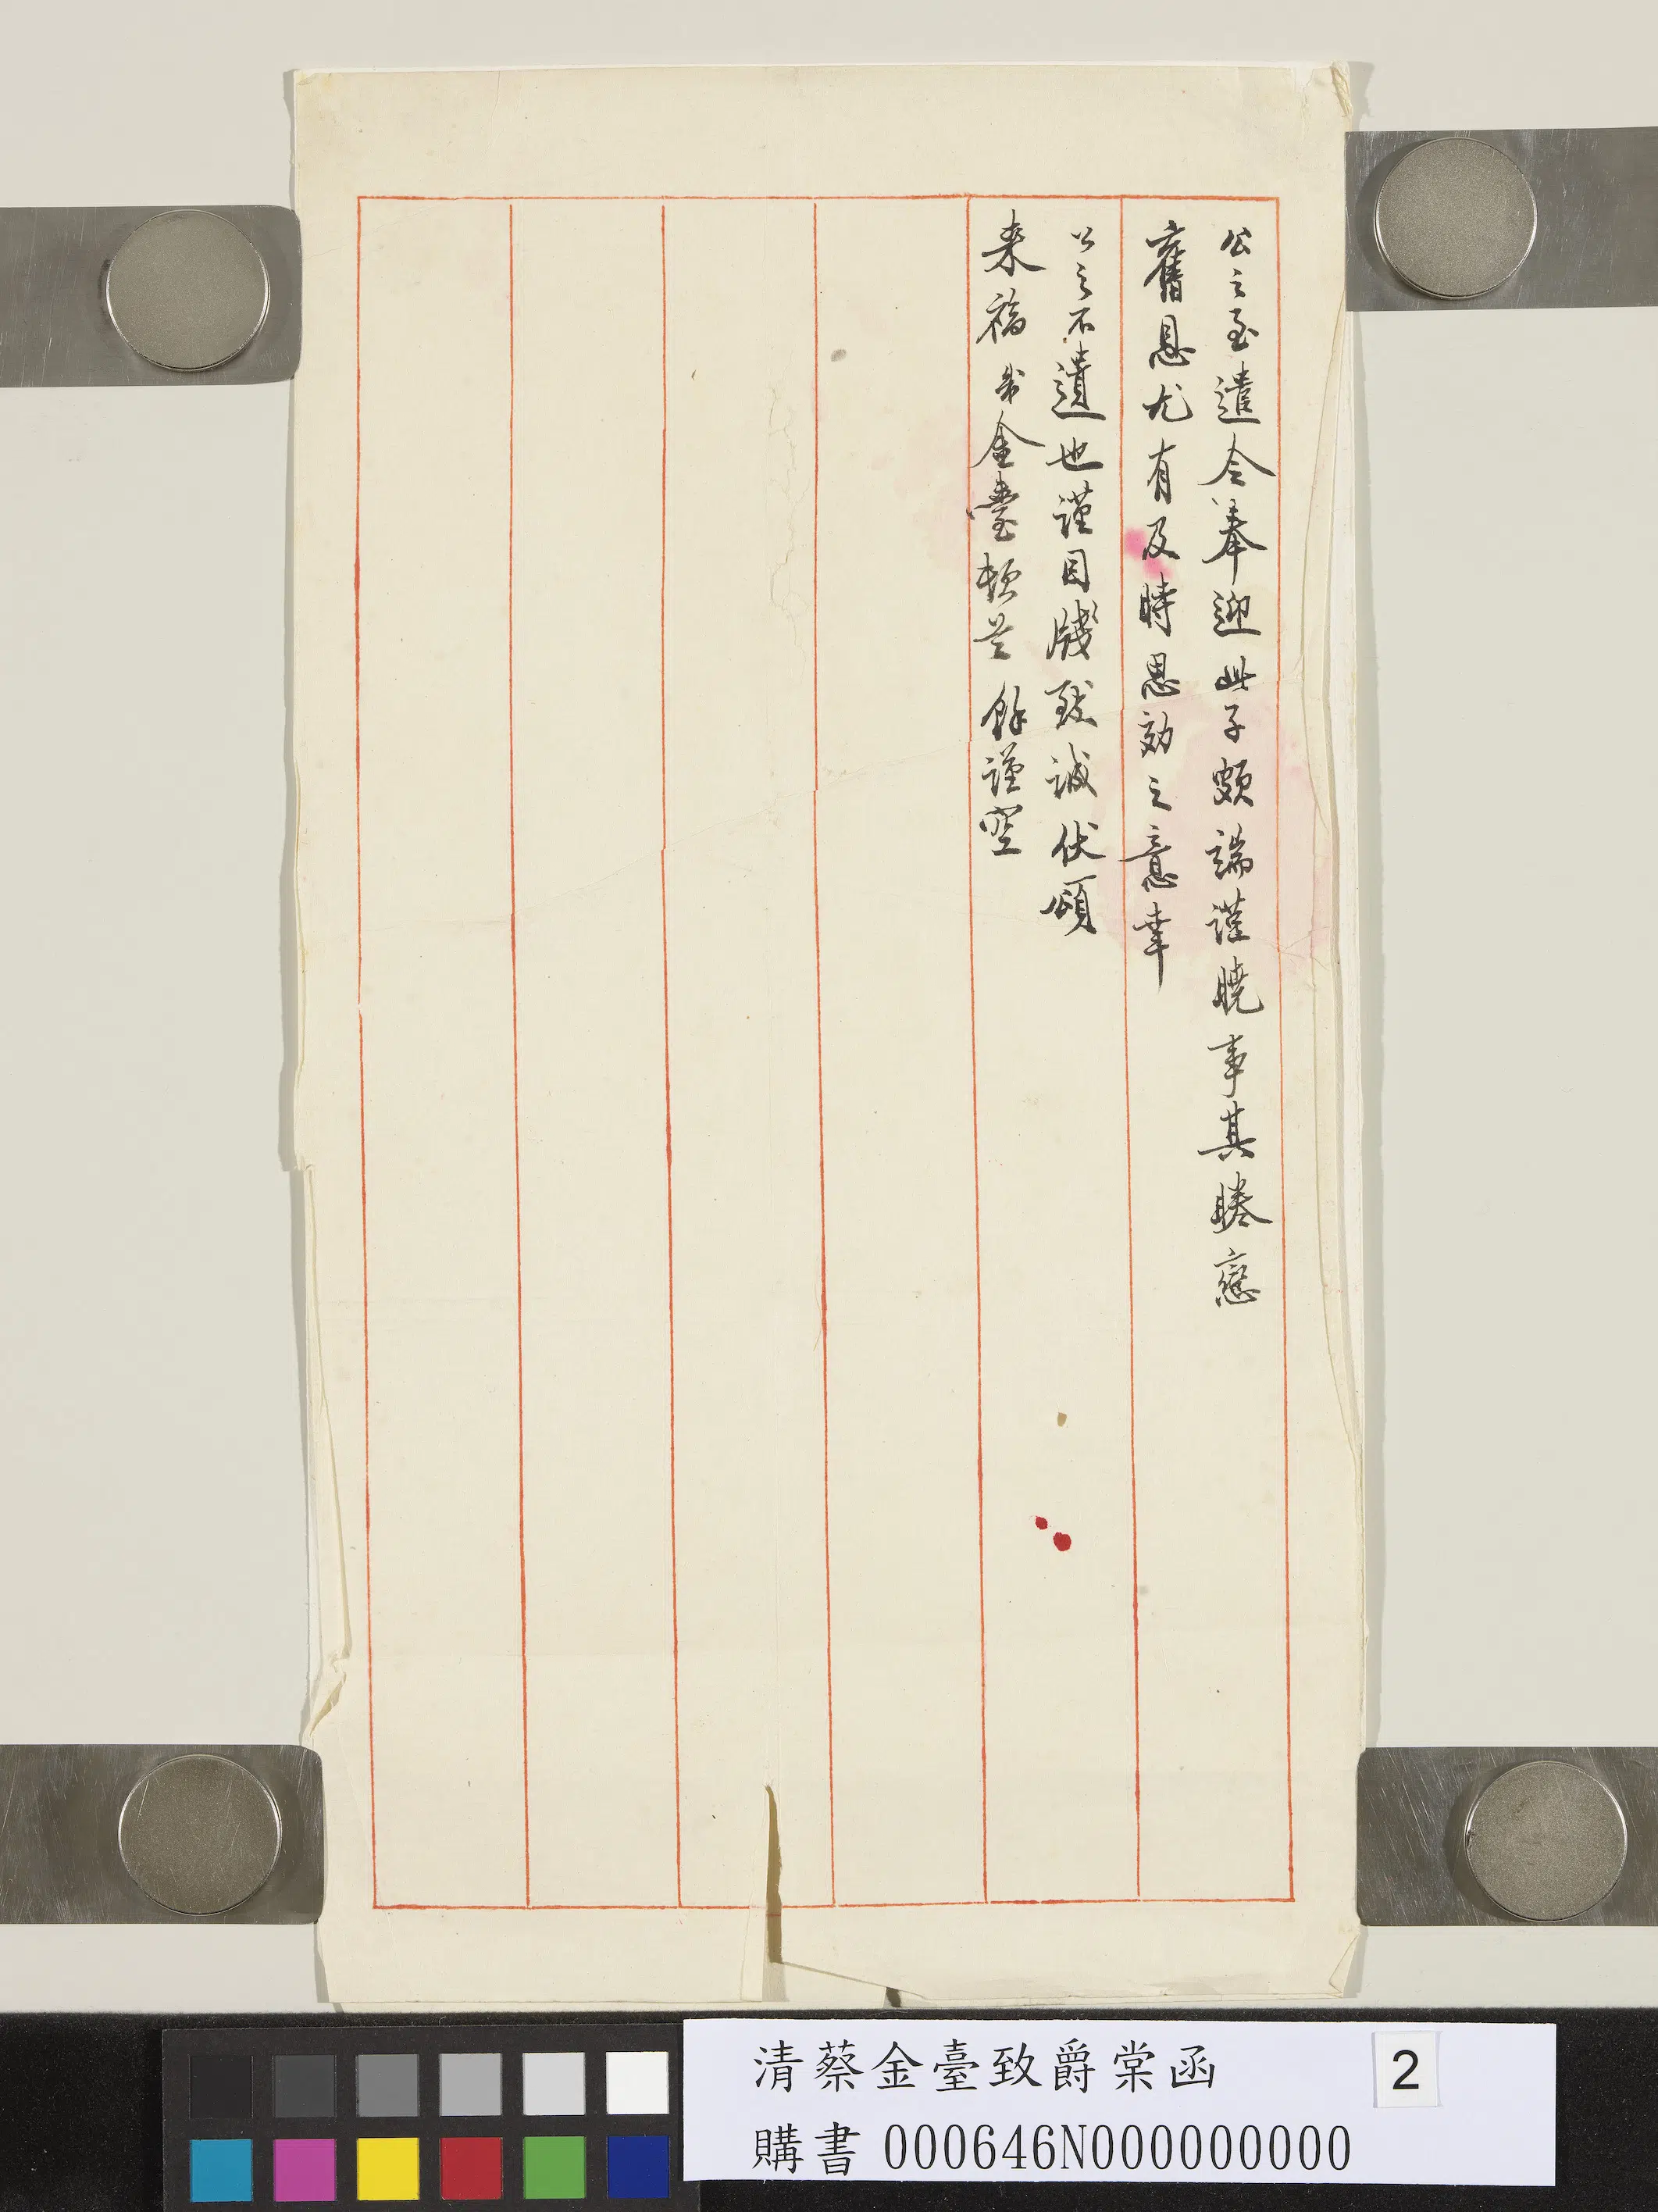 公之至遣令奉迎此子頗端謹曉事其睠戀
舊恩尤有及時思効之意幸
公之不遺也謹因牋致誠伏頌
来福 弟金臺頓首 餘謹空
清蔡金臺致爵棠函
2
購書 000646N000000000